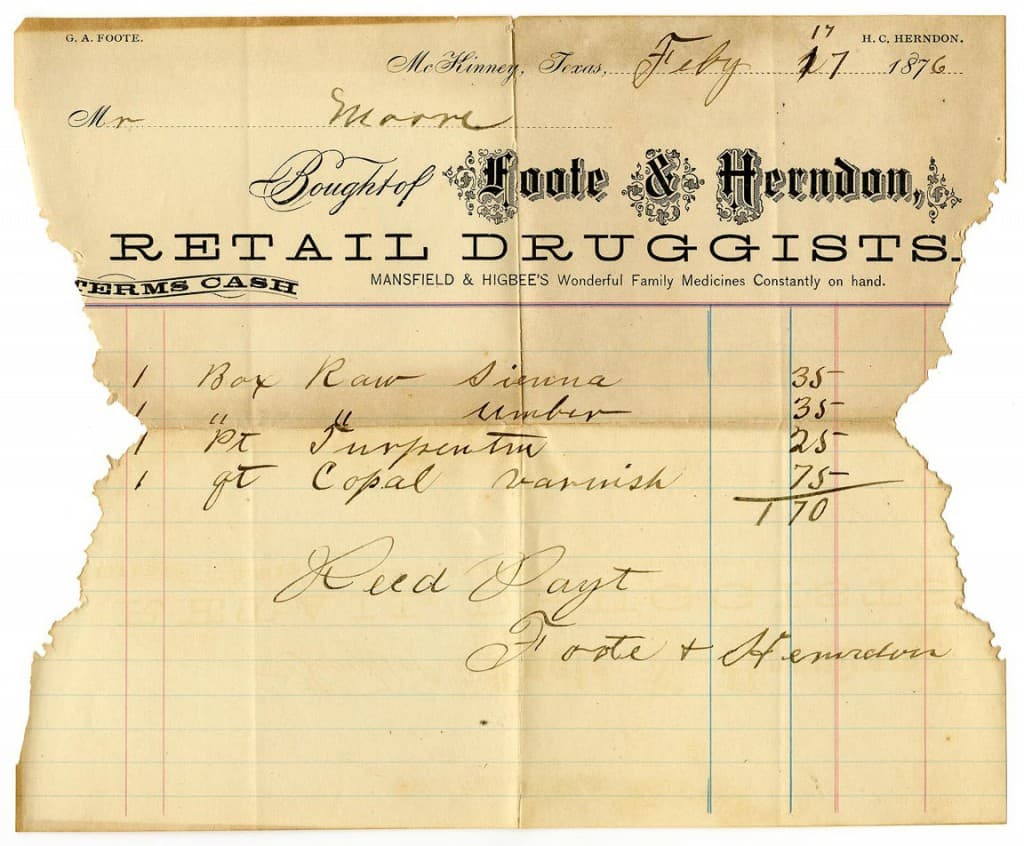 G. A. FOOTE. H. C. HERNDON.
17
McKinney, Texas, Feby 17 1876
Mr Moore
Bought of Foote & Herndon,
RETAIL DRUGGISTS.
TERMS CASH MANSFIELD & HIGBEE'S Wonderful Family Medicines Constantly on hand.
1 Box Raw Sienna 35
1 " " umber 35
1 Pt Turpentin 25
1 qt Copal varnish 75
1 70
Recd Payt
Foote + Herndon